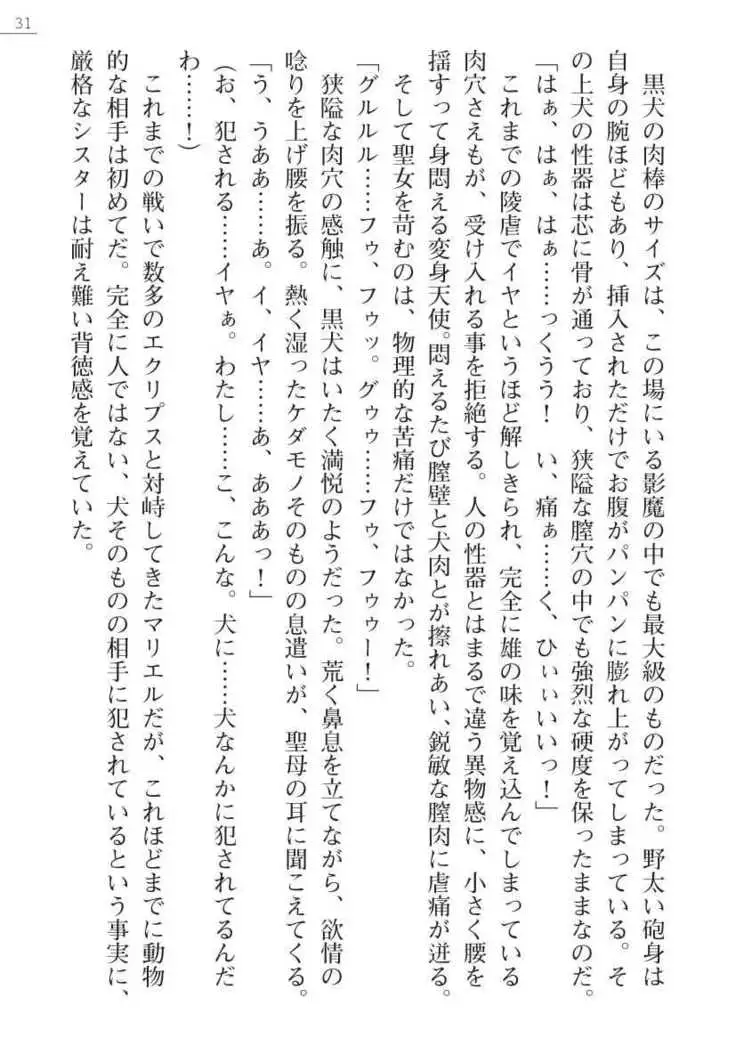 31
黒犬の肉棒のサイズは、この場にいる影魔の中でも最大級のものだった。野太い砲身は
自身の腕ほどもあり、挿入されただけでお腹がパンパンに膨れ上がってしまっている。そ
の上犬の性器は芯に骨が通っており、狭隘な膣穴の中でも強烈な硬度を保ったままなのだ。
「はぁ、はぁ、はぁ……っくうう！　い、痛ぁ……く、ひぃぃいいっ！」
これまでの陵虐でイヤというほど解しきられ、完全に雄の味を覚え込んでしまっている
肉穴さえもが、受け入れる事を拒絶する。人の性器とはまるで違う異物感に、小さく腰を
揺すって身悶える変身天使。悶えるたび膣壁と犬肉とが擦れあい、鋭敏な膣肉に虐痛が迸る。
そして聖女を苛むのは、物理的な苦痛だけではなかった。
「グルルル……フゥ、フゥッ。グゥゥ……フゥ、フゥゥー！」
狭隘な肉穴の感触に、黒犬はいたく満悦のようだった。荒く鼻息を立てながら、欲情の
唸りを上げ腰を振る。熱く湿ったケダモノそのものの息遣いが、聖母の耳に聞こえてくる。
「う、うああ……あ。イ、イヤ……あ、あああっ！」
（お、犯される……イヤぁ。わたし……こ、こんな。犬に……犬なんかに犯されてるんだ
わ……！）
これまでの戦いで数多のエクリプスと対峙してきたマリエルだが、これほどまでに動物
的な相手は初めてだ。完全に人ではない、犬そのものの相手に犯されているという事実に、
厳格なシスターは耐え難い背徳感を覚えていた。